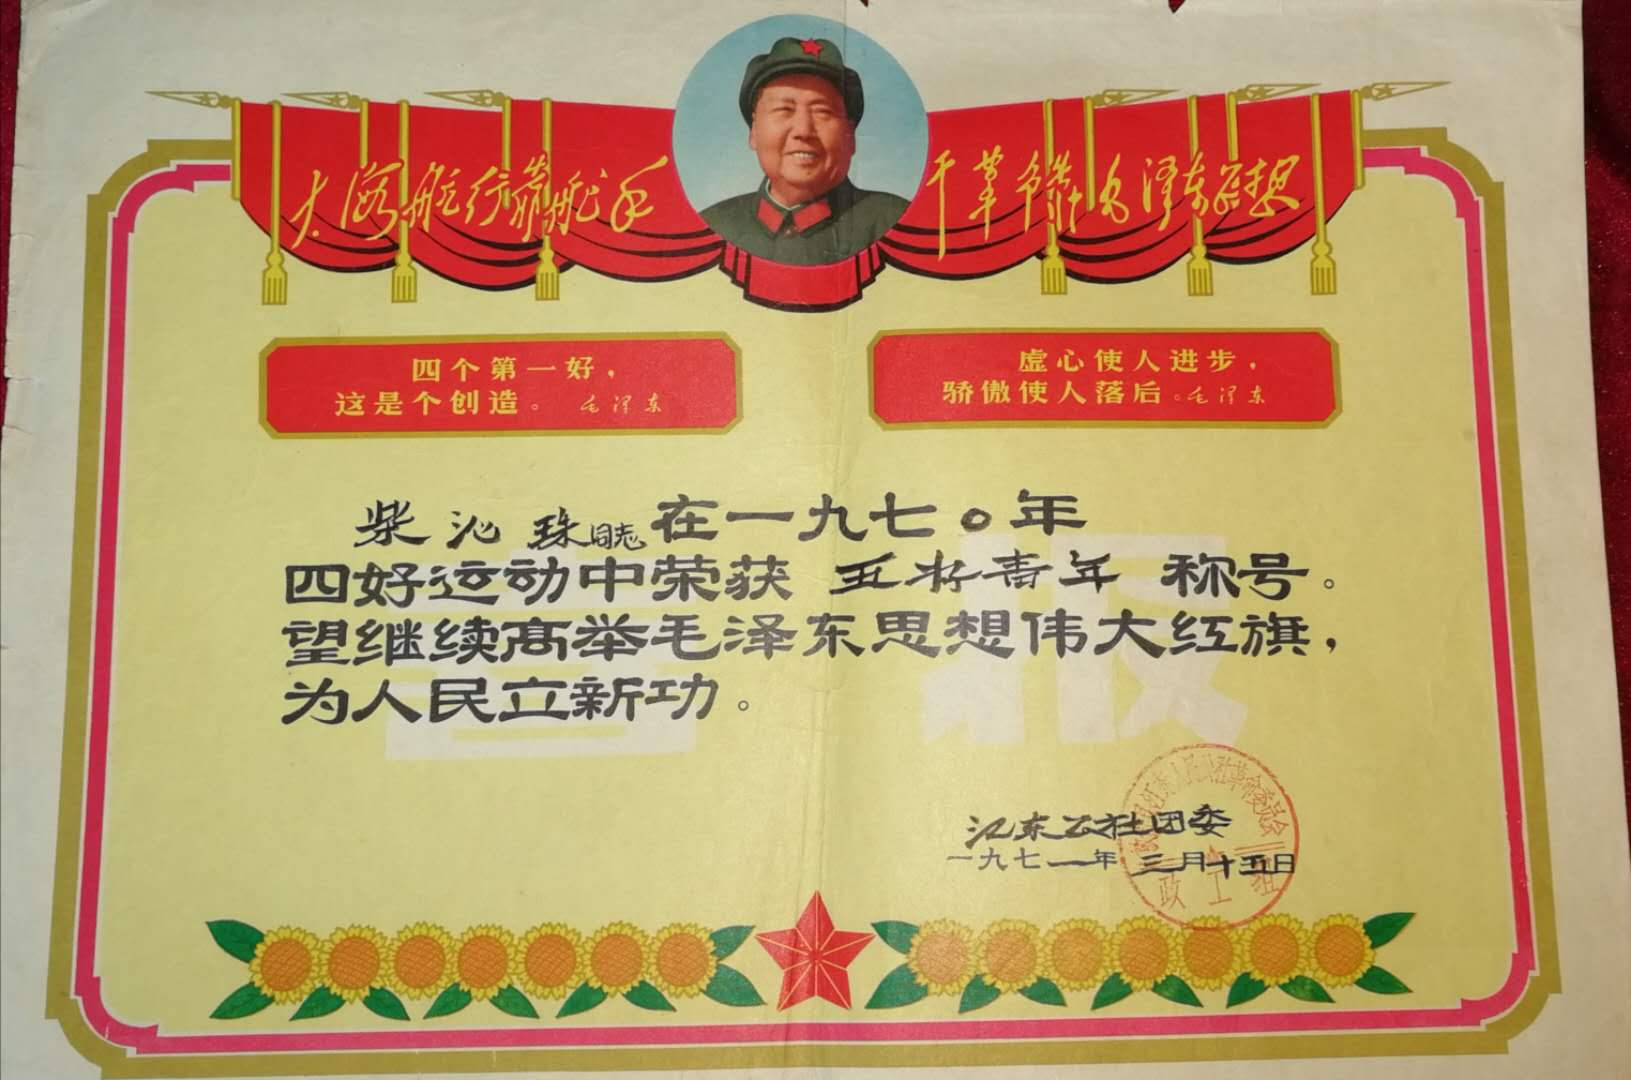 大海航行靠舵手
干革命靠毛泽东思想
四个第一好，
这是个创造。 毛泽东
虚心使人进步，
骄傲使人落后。毛泽东
喜报
柴沁珠同志在一九七〇年
四好运动中荣获 五好青年 称号。
望继续高举毛泽东思想伟大红旗，
为人民立新功。
江东公社团委
一九七一年三月十五日
政工组